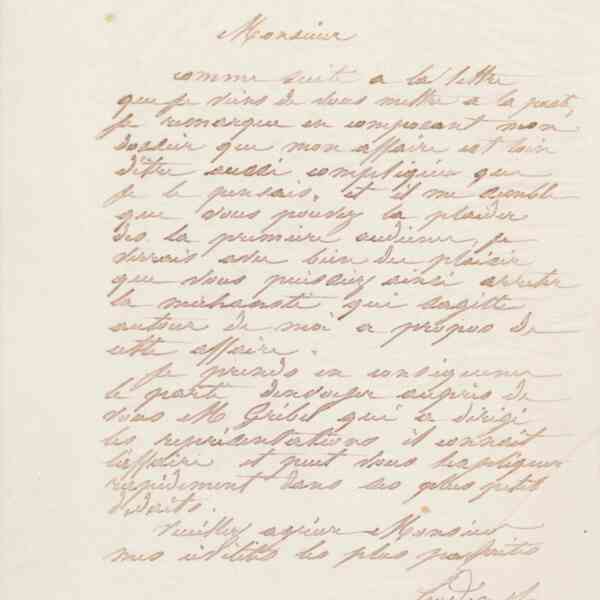 Monsieur
comme suite a la lettre
que je viens de vous mettre a la poste,
je remarque en composant mon
dossier que mon affaire est loin
d'être aussi compliquée que
je le pensais, et il me semble
que vous pouvez la plaider
des la première audience, je
verrais avec bien du plaisir
que vous puissiez ainsi arreter
la mechanseté qui sagite
autour de moi a propos de
cette affaire.
Je prends en consequence
le parti denvoyer aupres de
vous M Gribel qui a dirigé
les représentations il connait
l'affaire et peut vous lexpliquer
rapidement dans ses plus petits
details.
Veuillez agréer Monsieur
mes civilités les plus parfaites